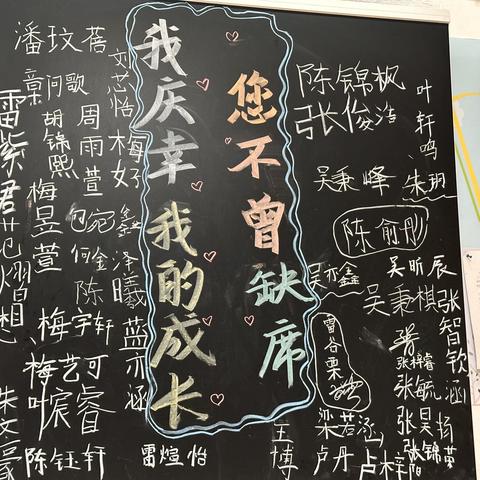 我庆幸我的成长
您不曾缺席
潘玟蓓
文芯怡
章问歌
胡锦熙
周雨萱
梅好
雷紫君
梅昱萱
何金鑫
陈宇轩
泽曦
蓝亦涵
梅艺可
梅叶宸睿
陈钰轩
雷煊怡
陈锦枫
张俊浩
叶轩鸣
吴秉峰
朱玥
陈俞彤
吴昕辰
吴亦鑫
吴秉棋
张智钦
曾谷栗
张梓睿
张毓涵
张昊杨
栾若涵
王博
卢丹
卢梓阳
张锦荣